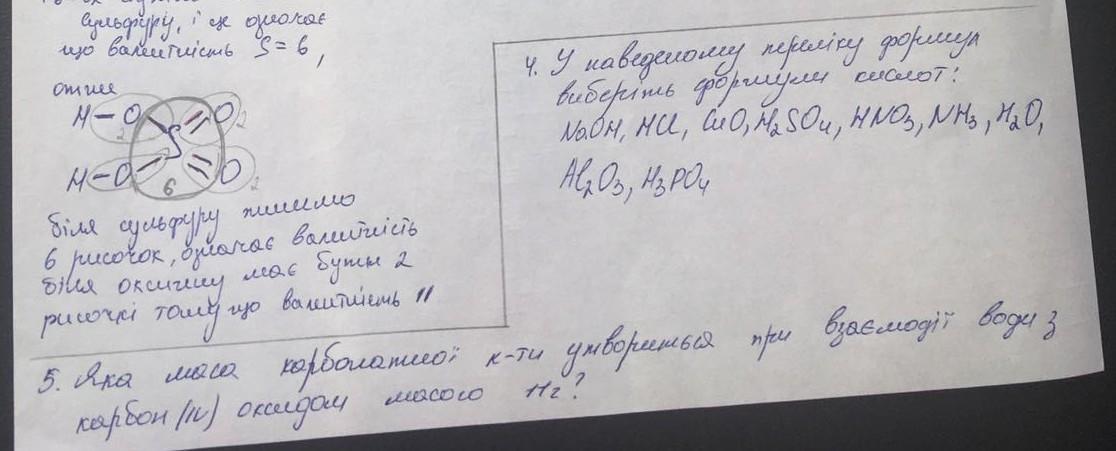 сульфуру, і це означає
що валентність S = 6,
отже
H – O O
2 S 2
H – O 6 O
2
біля сульфуру пишемо
6 рисочок, означає валентність
біля оксигену має бути 2
рисочкі тому що валентність II
4. У наведеному переліку формул
виберіть формули кислот:
NaOH, HCl, CuO, H₂SO₄, HNO₃, NH₃, H₂O,
Al₂O₃, H₃PO₄
5. Яка маса карбонатної к-ти утвориться при взаємодії води з
карбон (IV) оксидом масою 11г?